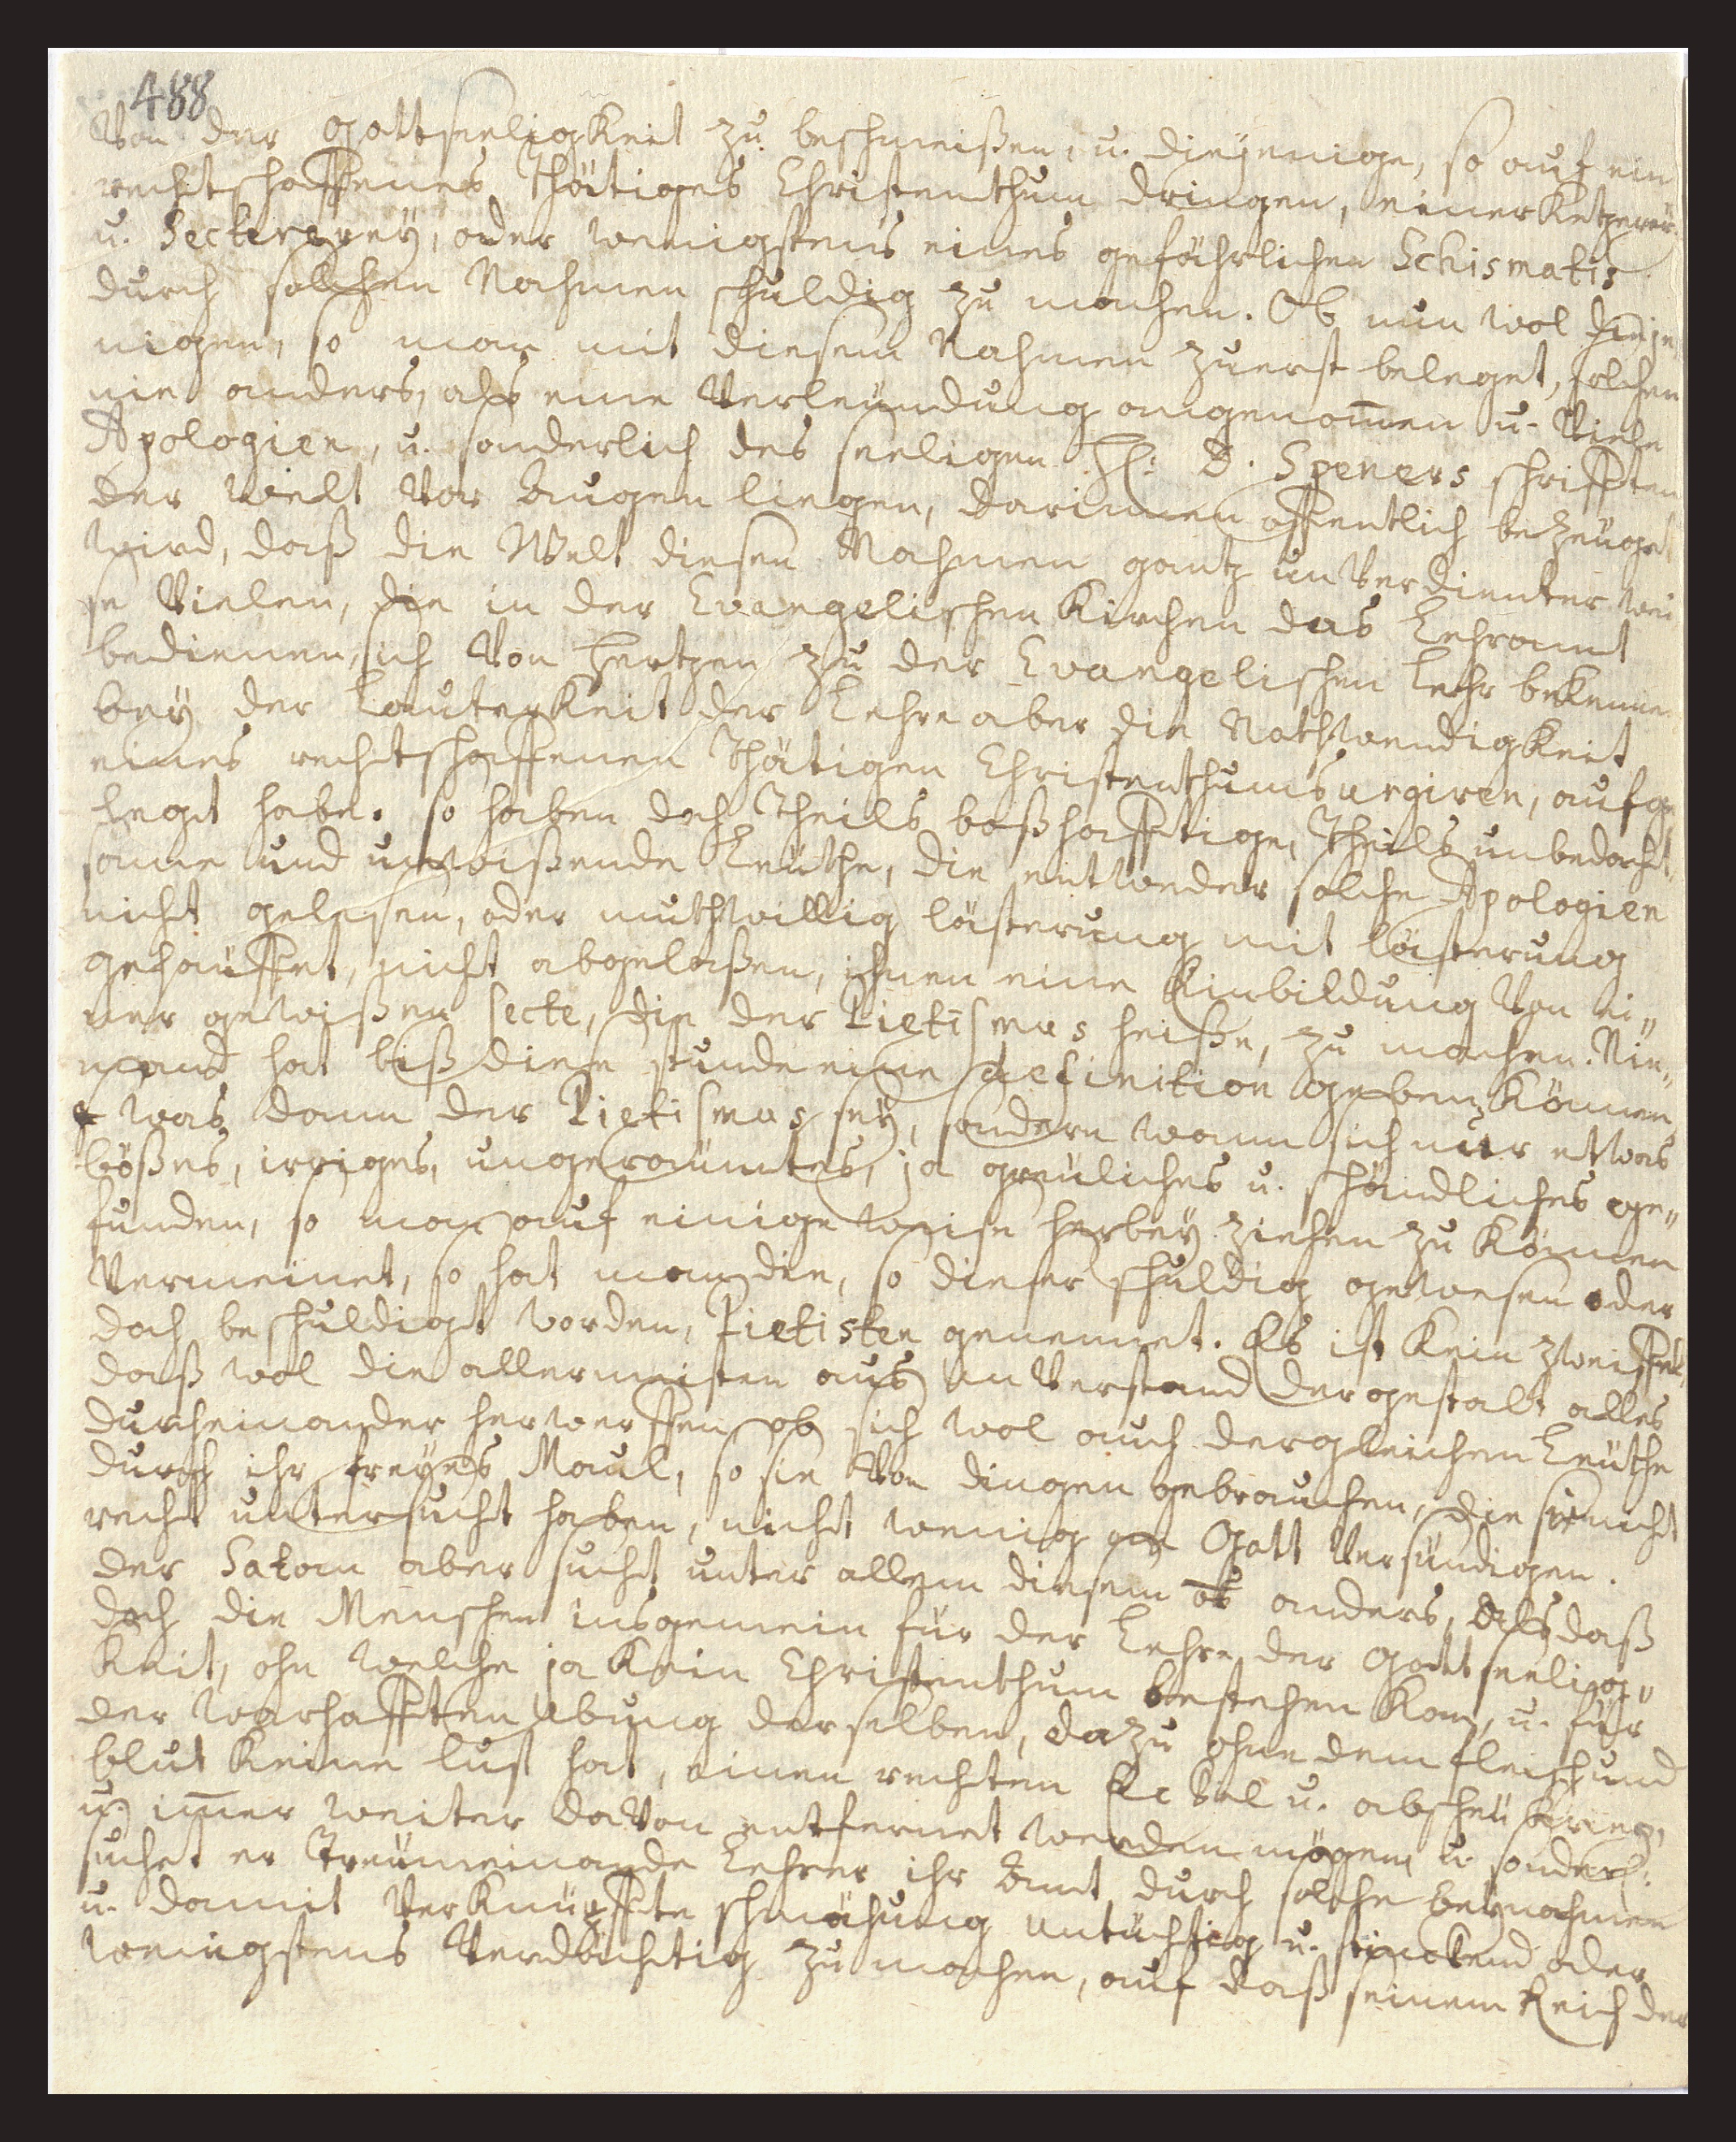 488
Von der Gottseeligkeit zu beschmeißen, u. diejenige, so auf ein
rechtschaffenes thätiges Christenthum dringen, einer Ketzerey
u. Secterey, oder wenigstens eines gefährlichen Schismatis
durch solchen Nahmen schuldig zu machen. Ob nun wol dieje
nigen, so man mit diesem Nahmen zuerst beleget, solchen
nie anders, als eine Verleumdung angenom̄en u. Viele
Apologien, u. sonderlich des seeligen H: D. Speners schrifften
der Welt Vor Augen liegen, darinnen offentlich bezeuget
wird, daß die Welt diesen Nahmen gantz unVerdienter wei
se Vielen, die in der Evangelischen Kirchen das Lehramt
bedienen, sich Von Hertzen zu der Evangelischen Lehr bekenne
bey der Lauterkeit der Lehre aber die Nothwendigkeit
eines rechtschaffenen thätigen Christenthums urgiren, aufge
legt habe. so haben doch theils boßhafftige, theils unbedacht
same und unwißende Leuthe, die entweder solche Apologien
nicht gelesen, oder muthwillig lästerung mit lästerung
gehäuffet, nicht abgelaßen, ihnen eine Einbildung Von ei„
ner gewißen Secte, die der Pietismus heiße, zu machen. Nie„
mand hat biß diese stunde eine definition geben können
was dann der Pietismus sey, sondern wann sich nur etwas
bößes, irriges, ungeräumtes, ja greuliches u. schändliches ge„
funden, so man auf einige weise herbey ziehen zu können
Vermeinet, so hat man die, so dieser schuldig gewesen oder
doch beschuldigt worden, Pietisten genennet. Es ist kein zweiffel,
daß wol die allermeisten aus unVerstand dergestalt alles
durcheinander herwerffen, ob sich wol auch dergleichen Leuthe
durch ihr freyes Maul, so sie Von dingen gebrauchen, die sie nicht
recht untersucht haben, nicht wenig an Gott Versündigen.
der Satan aber sucht unter allem diesem anders, als daß
doch die Menschen insgemein für der Lehre der Gottseelig„
keit, ohn welche ja kein Christenthum bestehen kan, u. für
der warhafften Übung derselben, dazu ohne dem fleisch und
blut keine lust hat, einen rechten Eckel u. abscheu kriegen,
u. im̄er weiter daVon entfernet werden mögen, u. sonderl:
suchet er treumeinende Lehrer ihr Amt durch solche beynahmen
u. damit Verknüpffte schmähung untüchtig u. stinckend oder
wenigstens Verdächtig zu machen, auf daß seinem Reich der